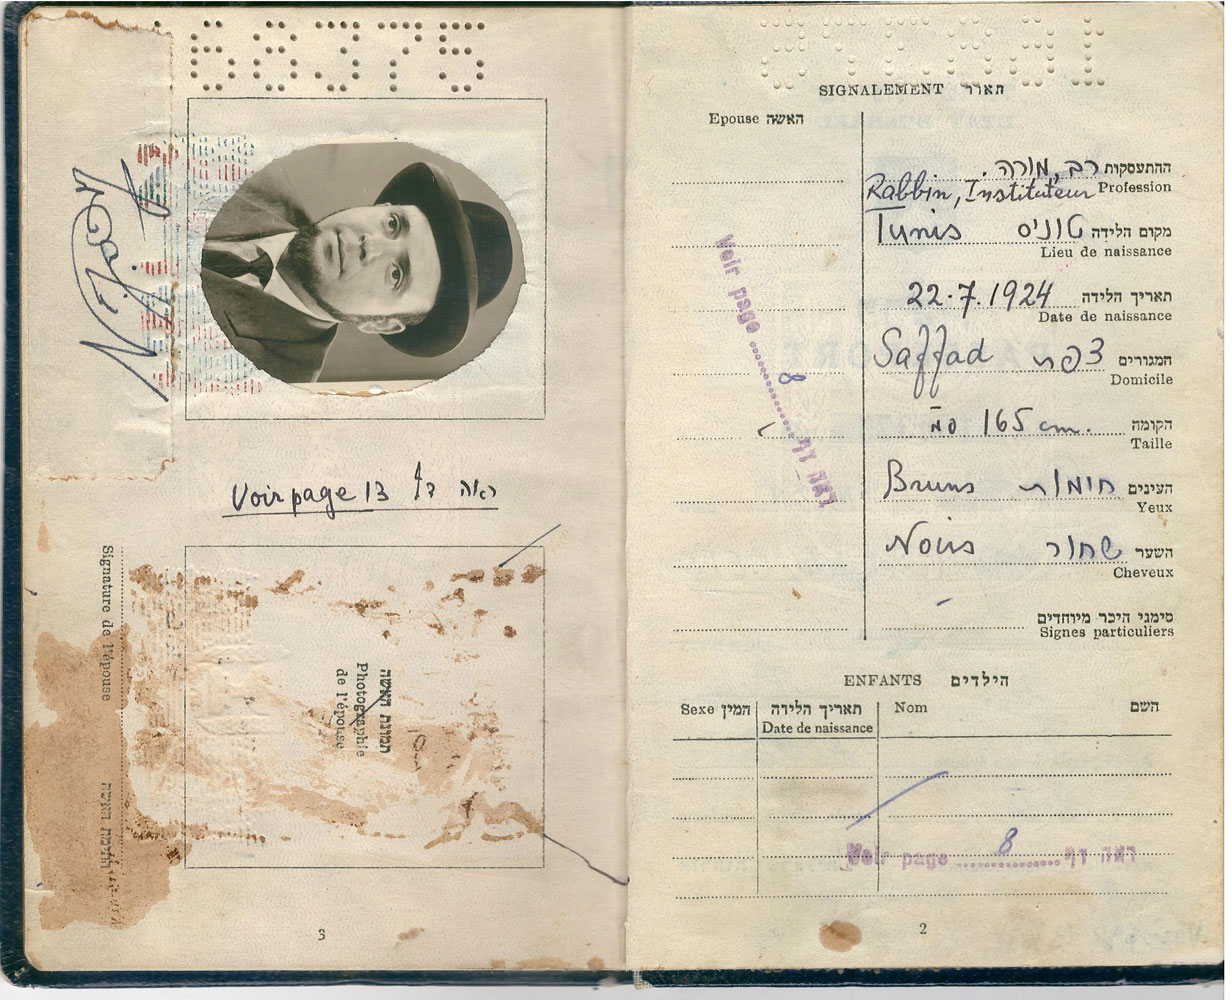 68375
Voir page 13 ראה דף
Signature de l'épouse
חתימת האשה
תמונת האשה
Photographie
de l'épouse
3
SIGNALEMENT תאור
Epouse האשה
רב, מורה ההתעסקות
Rabbin, Instituteur Profession
Tunis טוניס מקום הלידה
Lieu de naissance
22.7.1924 תאריך הלידה
Date de naissance
Saffad צפת המגורים
Domicile
165 cm. הקומה
Taille
Bruns חומות העינים
Yeux
Noirs שחור השער
Cheveux
סימני היכר מיוחדים
Signes particuliers
Voir page 8 ראה דף
ENFANTS הילדים
Sexe המין תאריך הלידה Nom השם
Date de naissance
Voir page 8 ראה דף
2